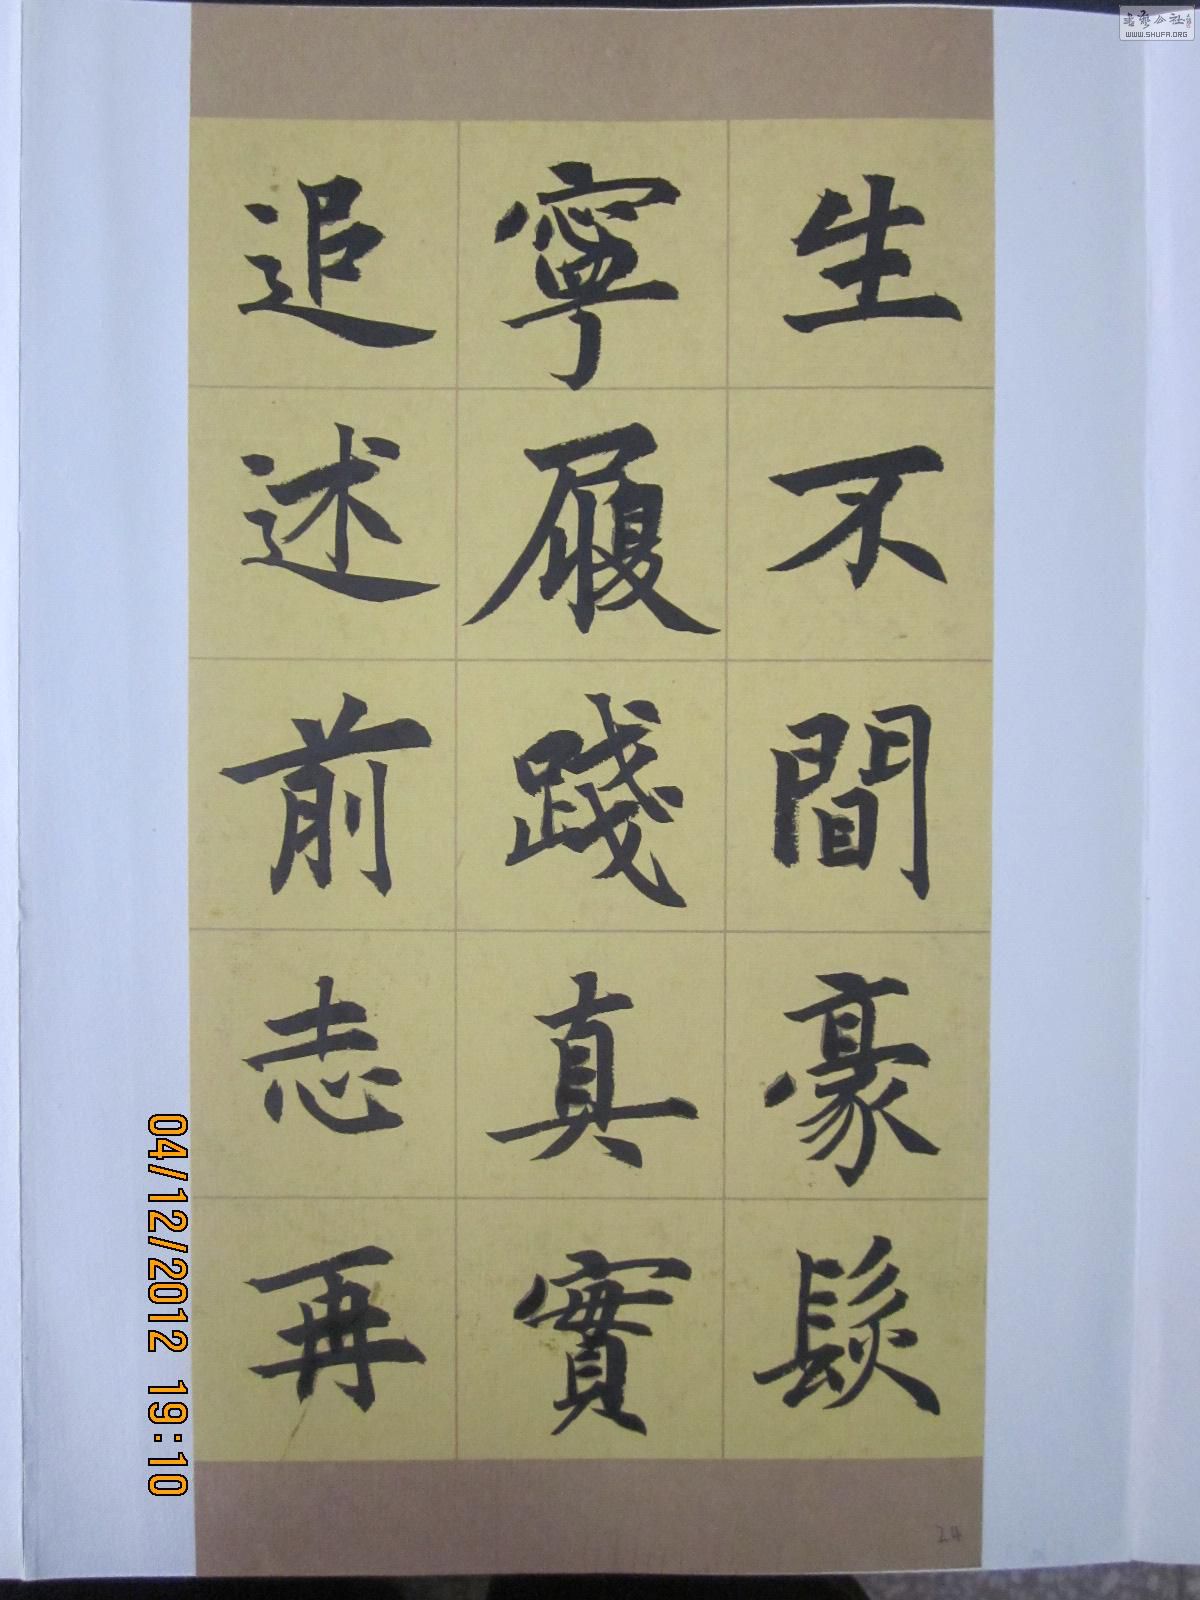 生不間豪髮
寧履踐真實
追述前志再
24
04/12/2012 19:10
書藝公社
WWW.SHUFA.ORG